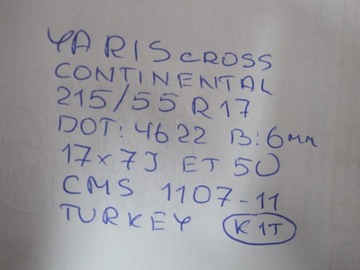 YARIS CROSS
CONTINENTAL
215/55 R 17
DOT: 4622 B: 6mm
17x7J ET 50
CMS 1107-11
TURKEY K1T